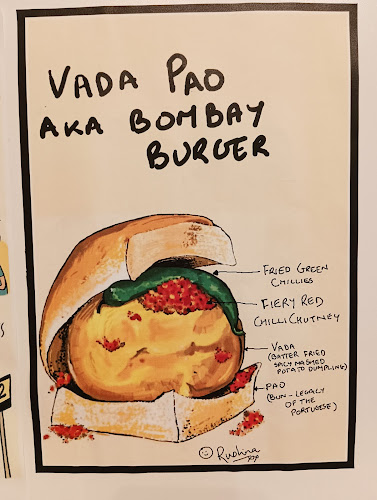 VADA PAO
AKA BOMBAY
BURGER
FRIED GREEN
CHILLIES
FIERY RED
CHILLI CHUTNEY
VADA
(BATTER FRIED
SPICY MASHED
POTATO DUMPLING)
PAO
(BUN - LEGACY
OF THE
PORTUGESE)
Rushina
S
2